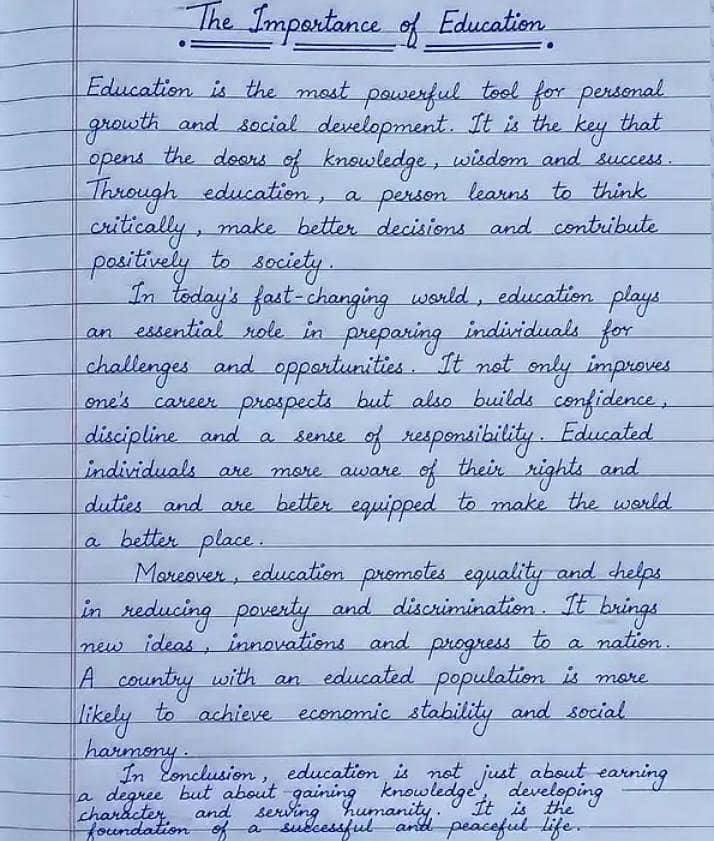 The Importance of Education
Education is the most powerful tool for personal
growth and social development. It is the key that
opens the doors of knowledge, wisdom and success.
Through education, a person learns to think
critically, make better decisions and contribute
positively to society.
In today's fast-changing world, education plays
an essential role in preparing individuals for
challenges and opportunities. It not only improves
one's career prospects but also builds confidence,
discipline and a sense of responsibility. Educated
individuals are more aware of their rights and
duties and are better equipped to make the world
a better place.
Moreover, education promotes equality and helps
in reducing poverty and discrimination. It brings
new ideas, innovations and progress to a nation.
A country with an educated population is more
likely to achieve economic stability and social
harmony.
In Conclusion, education is not just about earning
a degree but about gaining knowledge, developing
character and serving humanity. It is the
foundation of a successful and peaceful life.